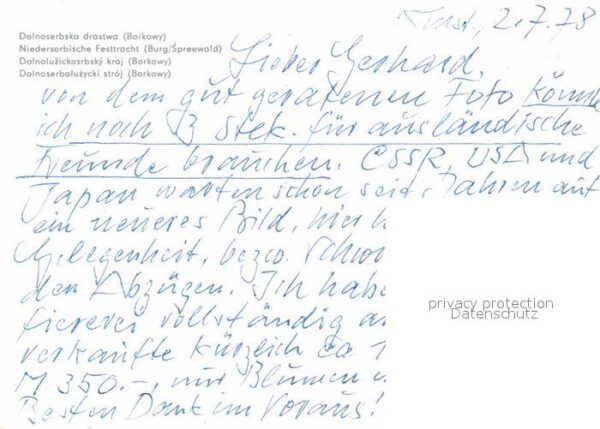 Dolnoserbska drastwa (Borkowy)
Niedersorbische Festtracht (Burg/Spreewald)
Dolnolužickosrbský kraj (Borkowy)
Dolnoserbołużycki strój (Borkowy)
2.7.78
Lieber Gerhard,
von dem gut geratenen Foto könnte
ich noch 3 Stck. für ausländische
Freunde brauchen. CSSR, USA und
Japan warten schon seit Jahren auf
ein neueres Bild, hier
Gelegenheit, bezw.
den Abzügen. Ich habe
vollständig
verkaufte kürzlich ca
M 350.-, nur Blumen
Besten Dank im Voraus!
privacy protection
Datenschutz